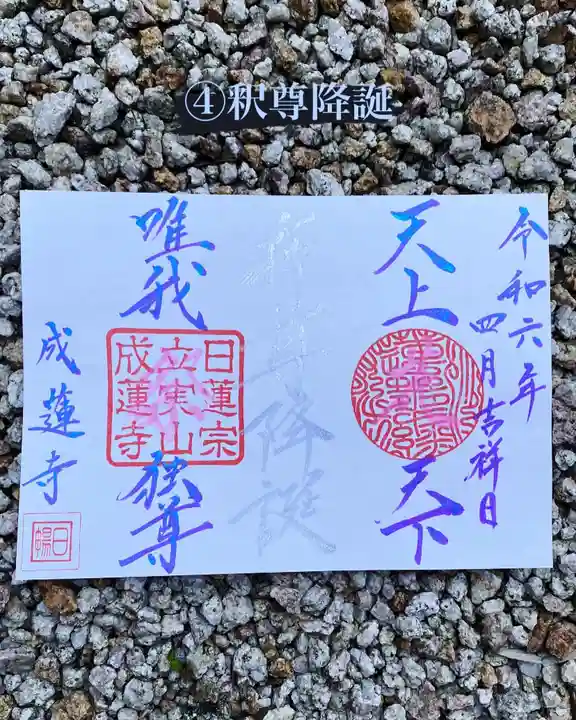 ④釈尊降誕
令和六年
四月吉祥日
天上
天下
釈尊降誕
唯我
独尊
日蓮宗
立実山
成蓮寺
成蓮寺